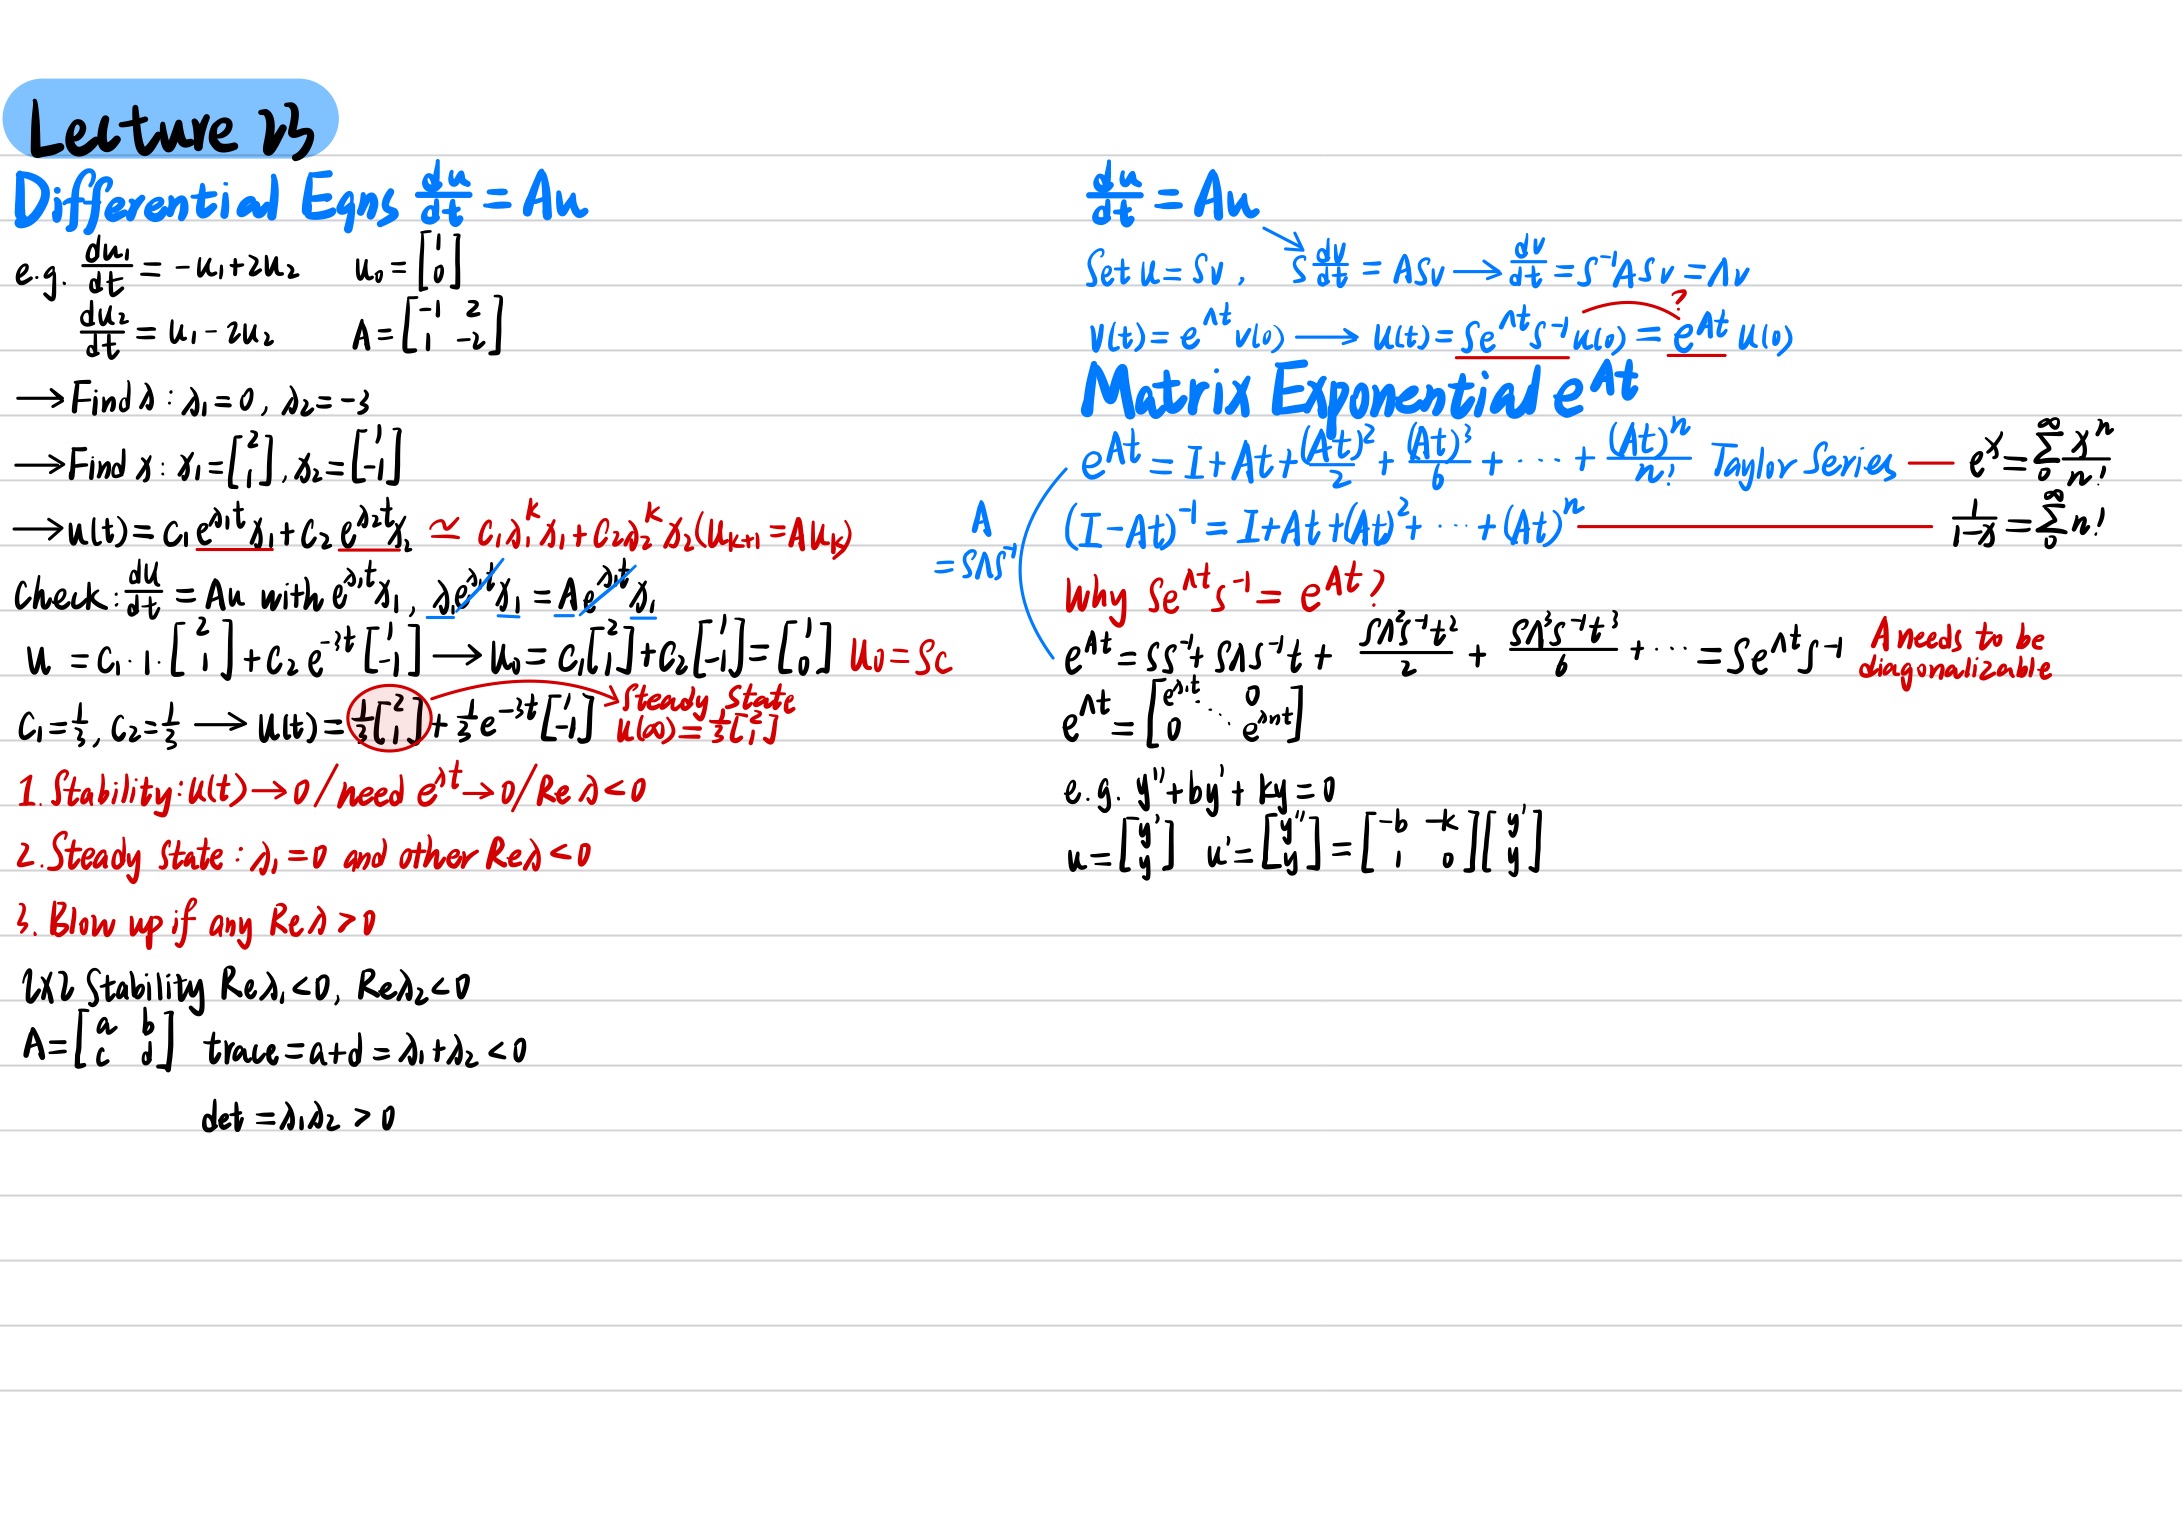 Lecture 23
Differential Eqns du/dt = Au
e.g. du₁/dt = -u₁+2u₂   u₀ = [1; 0]
du₂/dt = u₁-2u₂   A = [-1 2; 1 -2]
→ Find λ : λ₁=0, λ₂=-3
→ Find x : x₁=[2; 1], x₂=[1; -1]
→ u(t) = c₁e^{λ₁t}x₁ + c₂e^{λ₂t}x₂ ≃ c₁λ₁^k x₁ + c₂λ₂^k x₂ (u_{k+1} = Au_k)
Check: du/dt = Au with e^{λ₁t}x₁, λ₁e^{λ₁t}x₁ = Ae^{λ₁t}x₁
u = c₁·1·[2; 1] + c₂e^{-3t}[1; -1] → u₀ = c₁[2; 1] + c₂[1; -1] = [1; 0] u₀ = Sc
c₁=1/3, c₂=1/3 → u(t) = 1/3[2; 1] + 1/3e^{-3t}[1; -1]
Steady State
u(∞) = 1/3[2; 1]
1. Stability: u(t)→0 / need e^{λt}→0 / Re λ<0
2. Steady State : λ₁=0 and other Re λ<0
3. Blow up if any Re λ>0
2X2 Stability Re λ₁<0, Re λ₂<0
A = [a b; c d]   trace = a+d = λ₁+λ₂ < 0
det = λ₁λ₂ > 0
du/dt = Au
Set u = Sv, S dv/dt = ASv → dv/dt = S⁻¹ASv = Λv
v(t) = e^{Λt}v(0) → u(t) = Se^{Λt}S⁻¹u(0) = e^{At}u(0)
?
Matrix Exponential e^{At}
e^{At} = I+At+(At)²/2 + (At)³/6 + ··· + (At)ⁿ/n! Taylor Series — e^x = ∑₀^∞ xⁿ/n!
(I-At)⁻¹ = I+At+(At)²+ ··· + (At)ⁿ — 1/(1-x) = ∑₀^∞ n!
A
= SΛS⁻¹
Why Se^{Λt}S⁻¹ = e^{At}?
e^{At} = SS⁻¹ + SΛS⁻¹t + SΛ²S⁻¹t²/2 + SΛ³S⁻¹t³/6 + ··· = Se^{Λt}S⁻¹
A needs to be
diagonalizable
e^{Λt} = [e^{λ₁t} 0; ⋱; 0 e^{λnt}]
e.g. y''+by'+ky=0
u = [y'; y]   u' = [y''; y'] = [-b -k; 1 0][y'; y]